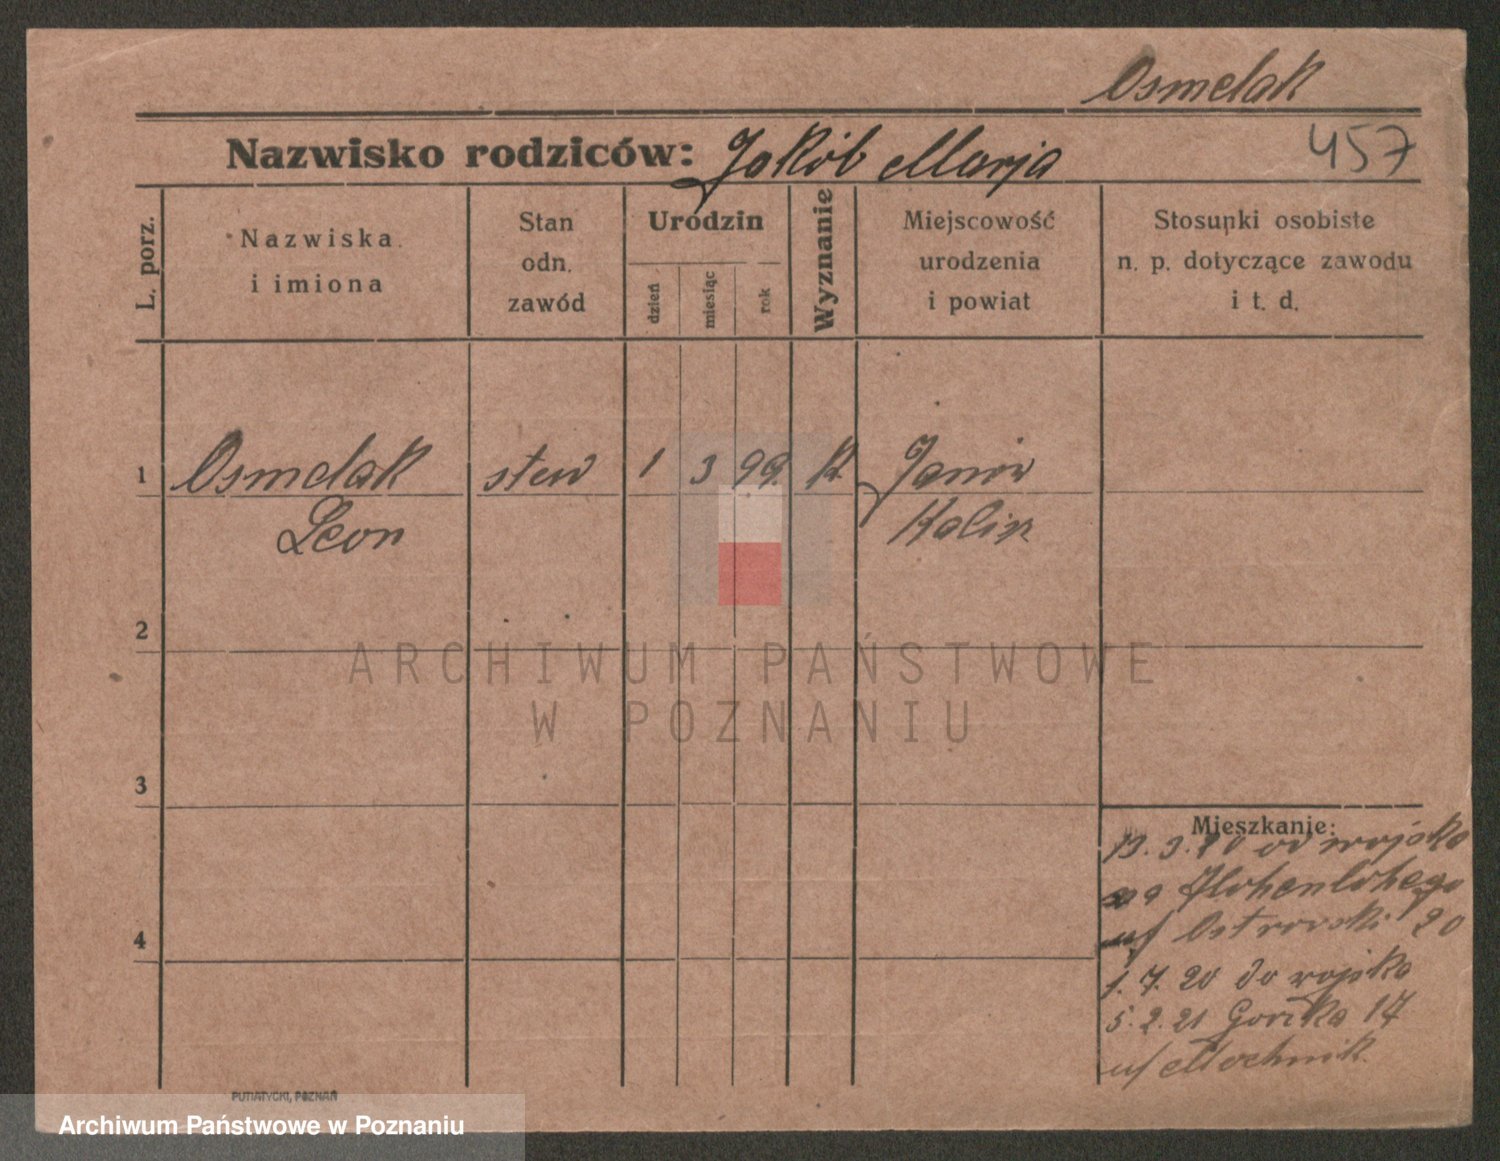 Osmelak
Nazwisko rodziców: Jakób Marja 457
L. porz.
Nazwiska i imiona
Stan odn. zawód
Urodzin
dzień
miesiąc
rok
Wyznanie
Miejscowość urodzenia i powiat
Stosunki osobiste n. p. dotyczące zawodu i t. d.
1 Osmelak stew 1 3 99. kt Janów
Leon Kalisz
2
ARCHIWUM PAŃSTWOWE
W POZNANIU
3
Mieszkanie:
13. 3. 20 od wojska
Hohenlohego
u/ Ostrovski 20
4
1. 7. 20 do wojska
5. 2. 21 Gorcka 17
u/ Mochnik.
PUTIATYCKI, POZNAŃ
Archiwum Państwowe w Poznaniu